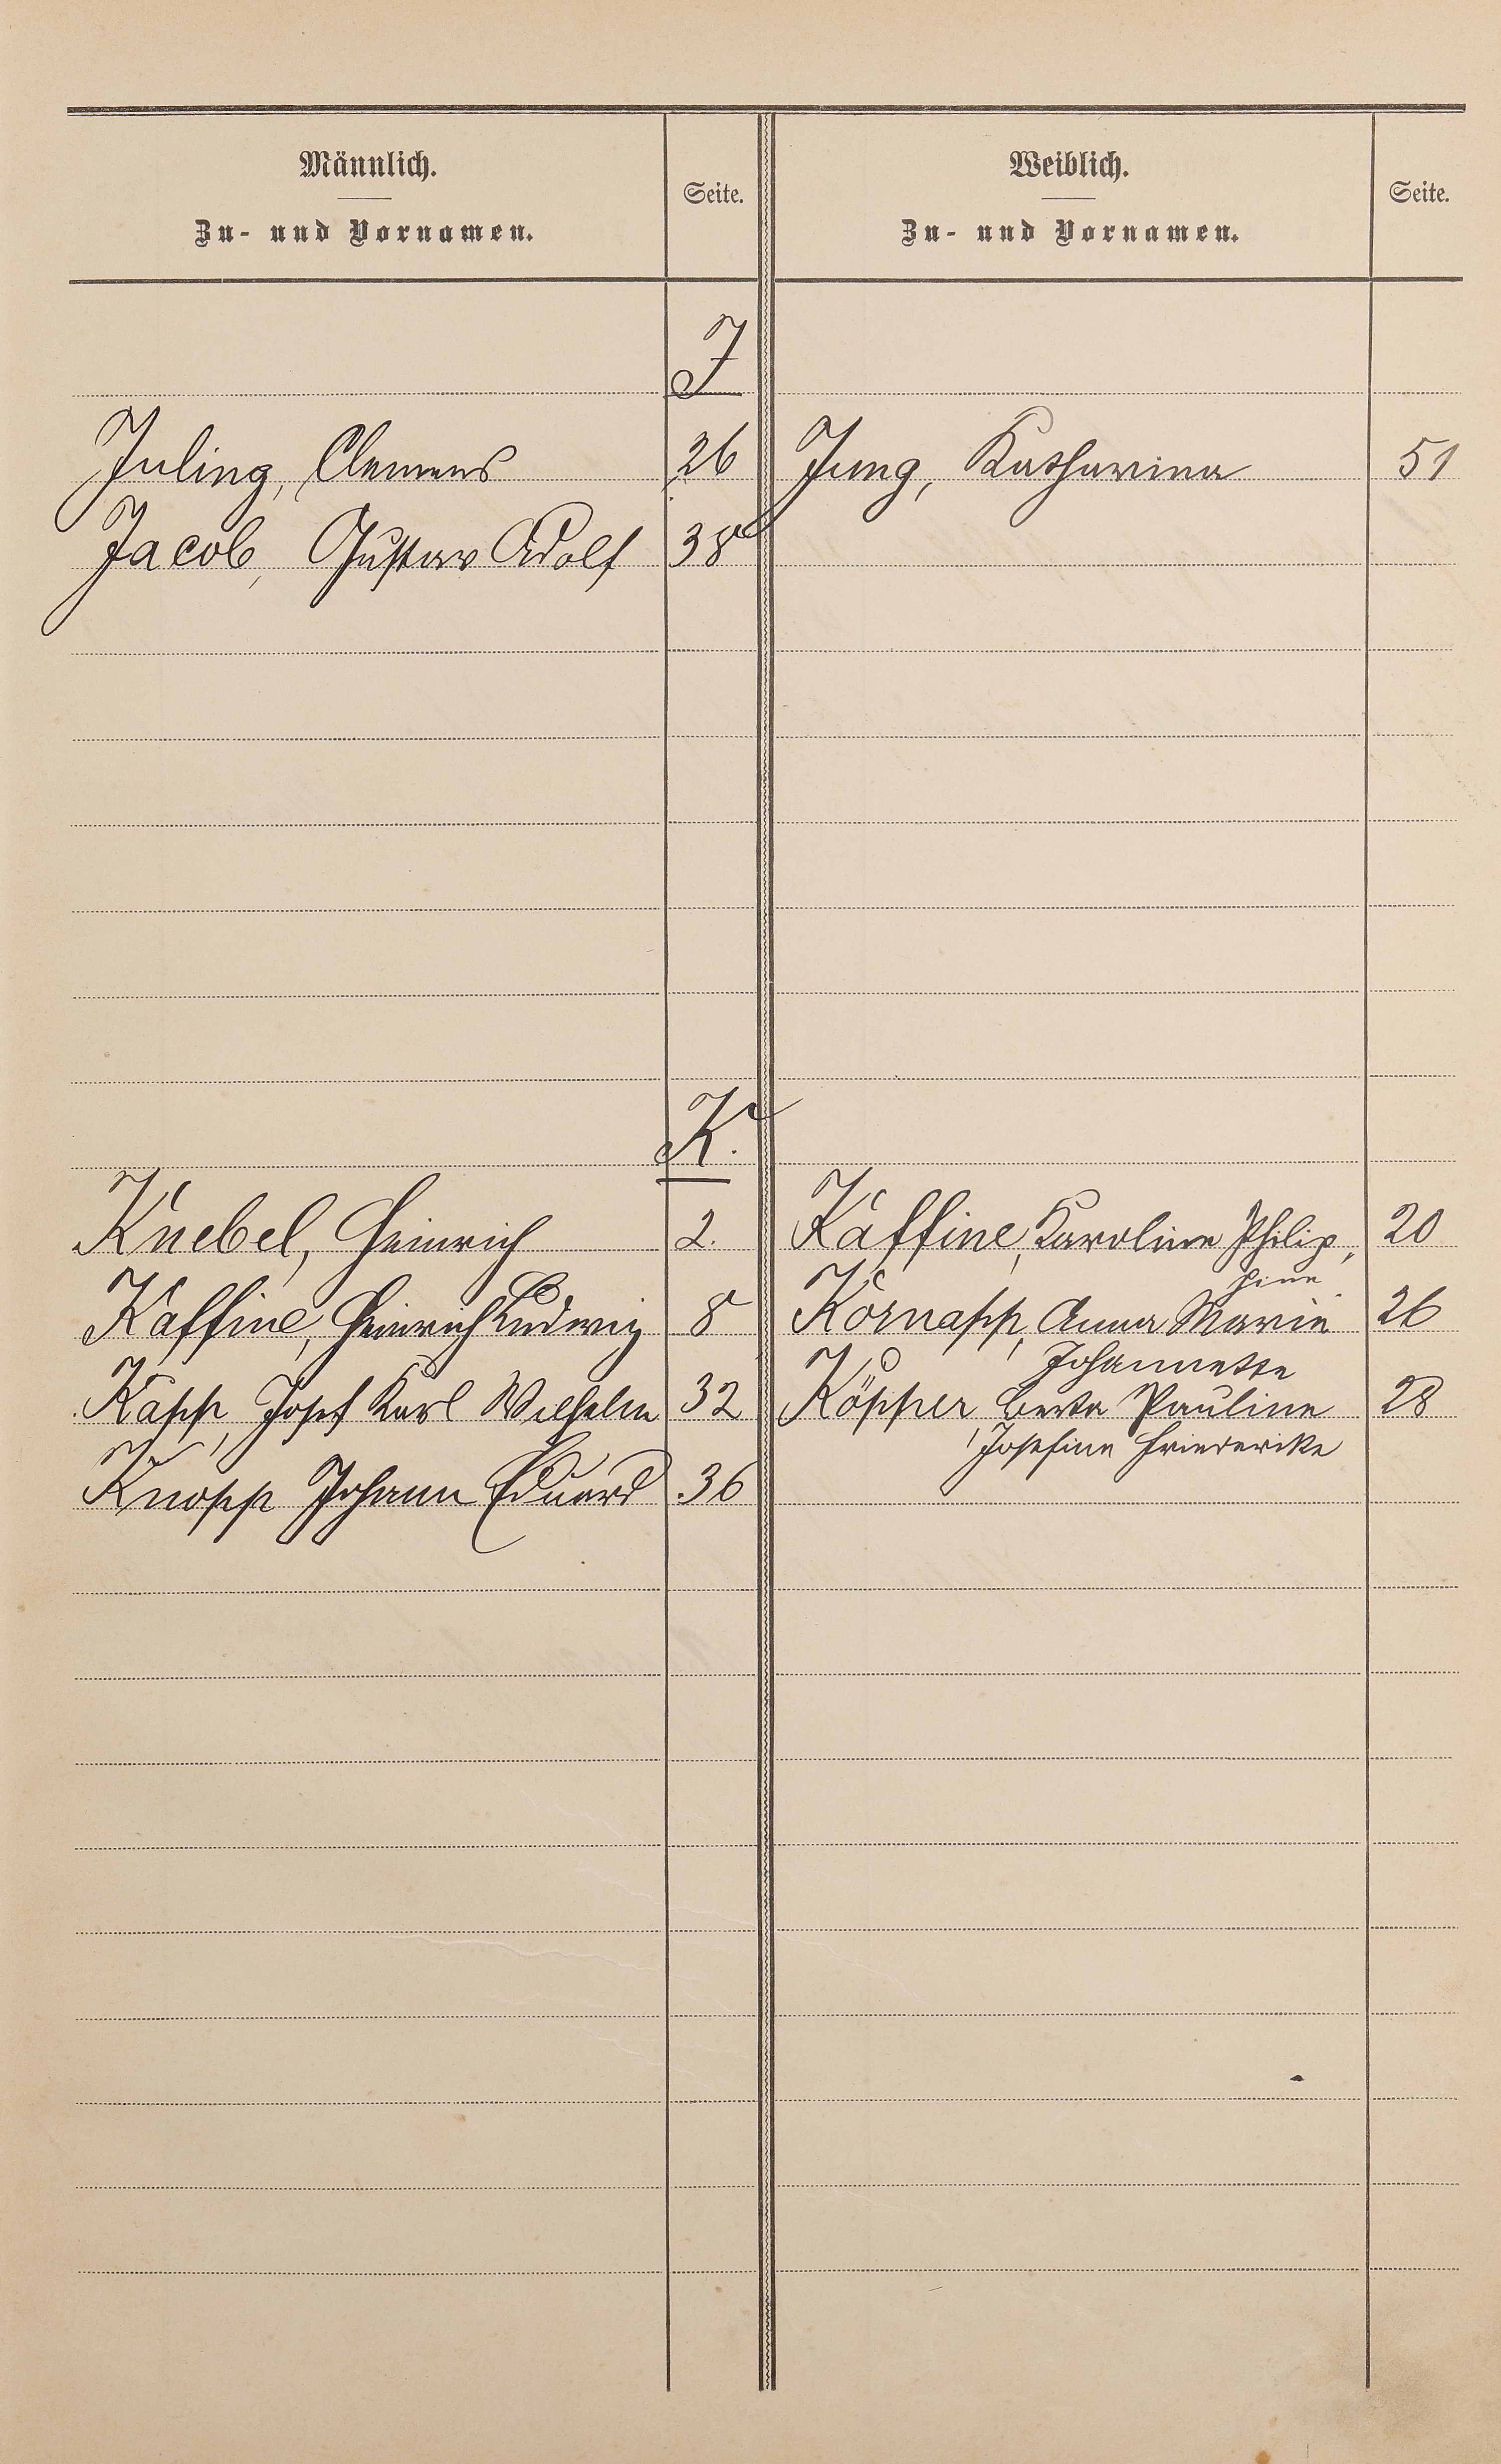 Männlich.
Zu- und Vornamen.
Seite.
Weiblich.
Zu- und Vornamen.
Seite.
J
Juling, Clemens 26 Jung, Katharina 51
Jacob, Gustav Adolf 38
K.
Knebel, Heinrich 2. Kaffine, Karoline Philip, 20
pine
Kaffine, Heinrich Ludwig 8 Körnapp, Anna Marie 26
Johannette
Kapp, Josef Karl Wilhelm 32 Köpper, Berta Pauline 28
Josefine Friederike
Knopp Johann Eduard 36